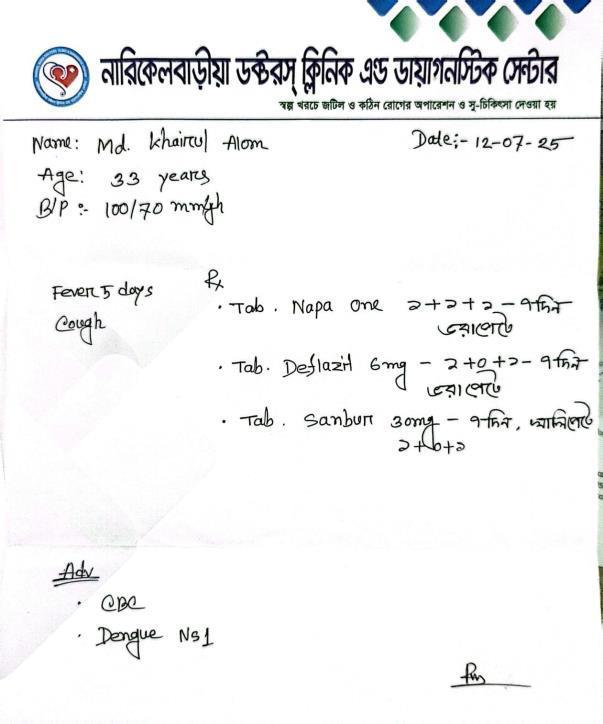 নারিকেলবাড়ীয়া ডক্টরস্ ক্লিনিক এণ্ড ডায়াগনস্টিক সেন্টার
স্বল্প খরচে জটিল ও কঠিন রোগের অপারেশন ও সু-চিকিৎসা দেওয়া হয়
Name: Md. Khairul Alom Date:- 12-07-25
Age: 33 years
B/P :- 100/70 mmHg
Fever 5 days
Cough
Rx
• Tab. Napa One ১+১+১ - ৭দিন
ভরাপেটে
• Tab. Deflazit 6mg - ১+0+১ - ৭দিন
ভরাপেটে
• Tab. Sanbur 30mg - ৭দিন, খালিপেটে
১+0+১
Adv
• CBC
• Dengue NS1